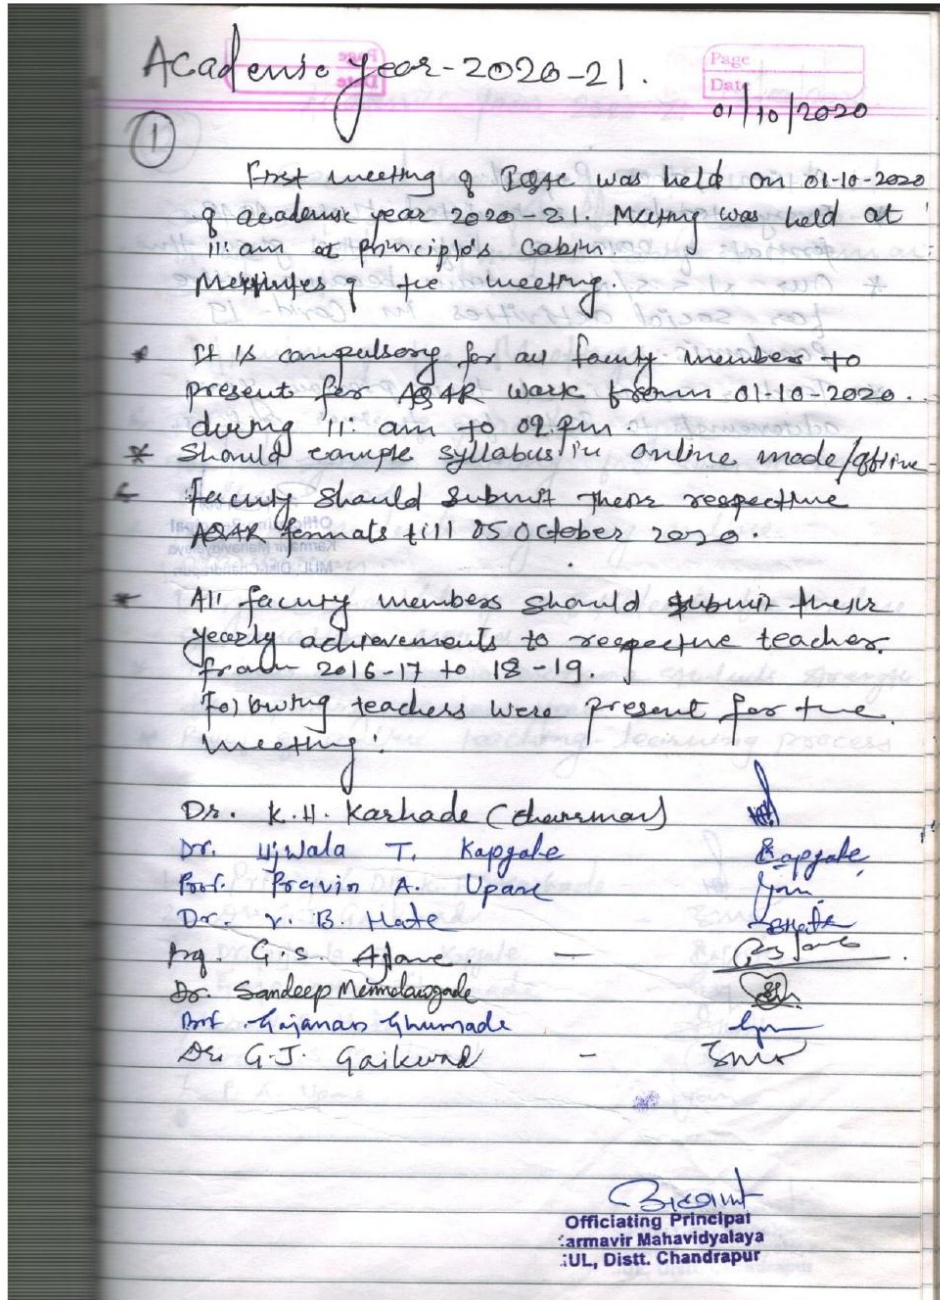 Academic year-2020-21.
Page
Date
01/10/2020
1
First meeting of IQAC was held on 01-10-2020
of academic year 2020-21. Meeting was held at
11:am at principlo's Cabin
of the meeting.
* It is compulsory for all faculty members to
present for AQAR work from 01-10-2020.
during 11: am to 02.pm.
* Should comple syllabus in online mode/offline
Faculty should submit their respective
AQAR formats till 05 October 2020.
* All faculty members should submit their
yearly achievements to respective teacher.
from 2016-17 to 18-19.
Following teachers were present for the
meeting:
Dr. K.H. Karhade (Chairman)
Dr. Ujwala T. Kapgate Kapgate
Prof. Pravin A. Upare
Dr. V. B. Hate
G.S. Aglave. —
Dr. Sandeep
Prof. Gajanan Ghumade
Dr. G.J. Gaikwad —
Officiating Principal
armavir Mahavidyalaya
UL, Distt. Chandrapur